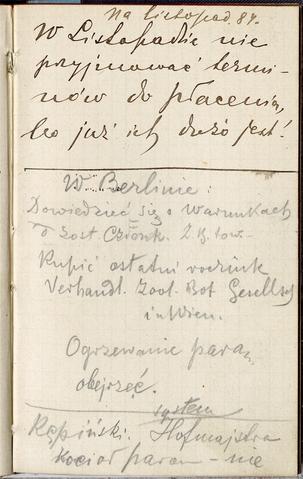 Na listopad. 84.
W Listopadzie nie
przyjmować termi-
nów do płacenia,
bo już ich dużo jest!
W Berlinie:
Dowiedzieć się o warunkach
Zost. Członk. tow.
Kupić ostatni rocznik
Verhandl. Zool. Bot Gesellsch
in Wien.
Ogrzewanie paran.
obejrzéć.
system
Kępiński. Hofmajstra
kocioł paran - nie